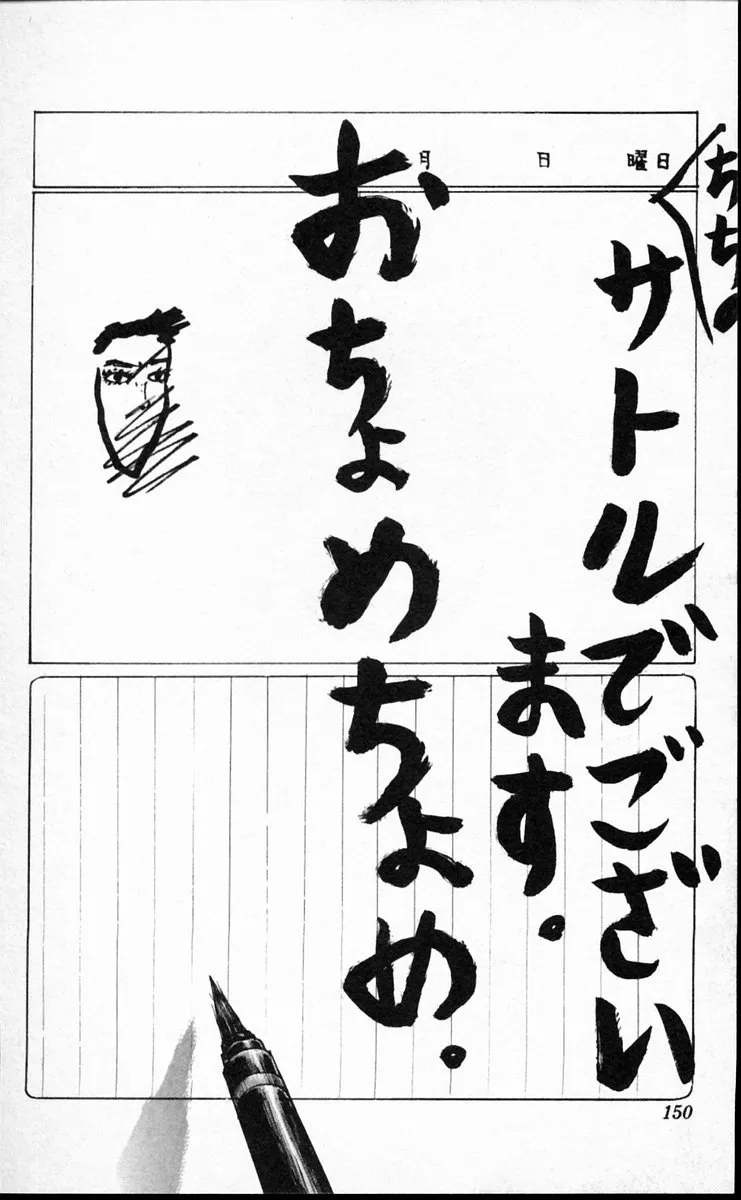 月　日　曜日
ちちの
サトルでござい
ます。
おちょめちょめ。
150